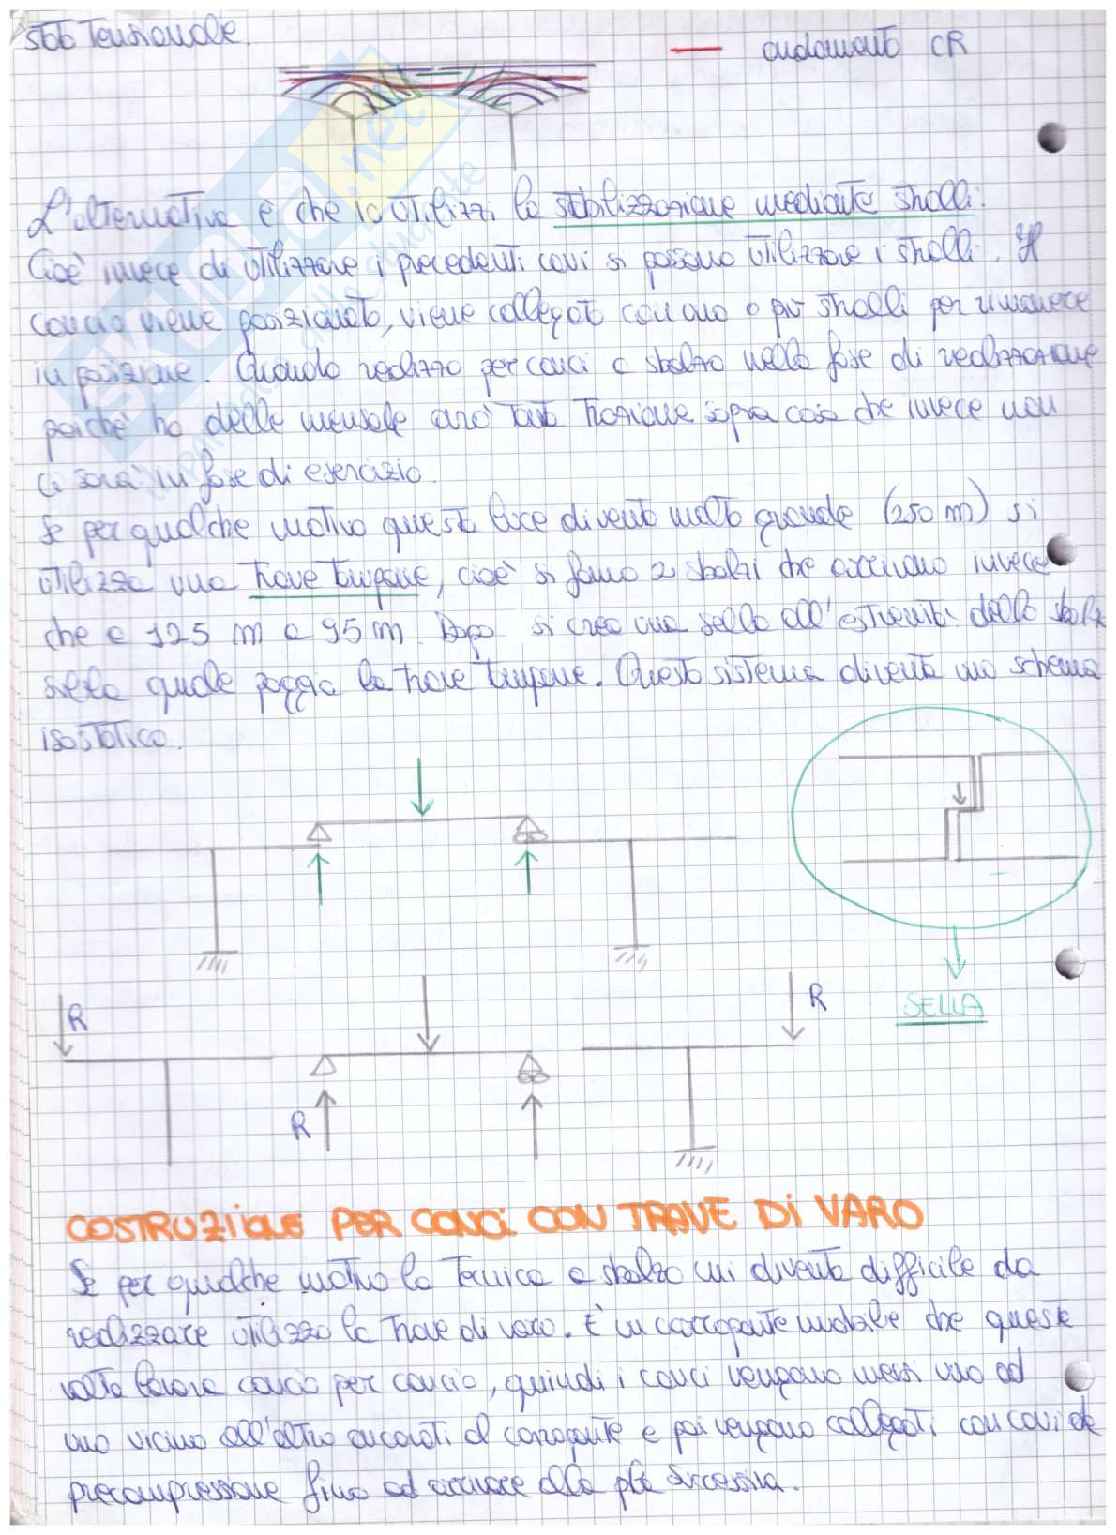 stato tensionale.
andamento CR
L'alternativa è che io utilizzi la stabilizzazione mediante stralli.
Cioè invece di utilizzare i precedenti cavi si possono utilizzare i stralli. Il
concio viene posizionato, viene collegato con uno o più stralli per rimanere
in posizione. Quando realizzo per conci a sbalzo nella fase di realizzazione
poiché ho delle mensole avrò tanta trazione sopra cosa che invece non
ci sarà in fase di esercizio.
Se per qualche motivo questa luce diventa molto grande (250 m) si
utilizza una trave tampone, cioè si fanno 2 sbalzi che arrivano invece
che a 125 m a 95 m. Dopo si crea una sella all'estremità dello sbalzo
sulla quale poggia la trave tampone. Questo sistema diventa uno schema
isostatico.
SELLA
R
R
R
COSTRUZIONE PER CONCI CON TRAVE DI VARO
Se per qualche motivo la tecnica a sbalzo mi diventa difficile da
realizzare utilizzo la trave di varo. È un carroponte mobile che questa
volta lavora concio per concio, quindi i conci vengono messi uno ad
uno vicino all'altro ancorati al carroponte e poi vengono collegati con cavi da
precompressione fino ad arrivare alla pila successiva.
skuola.net